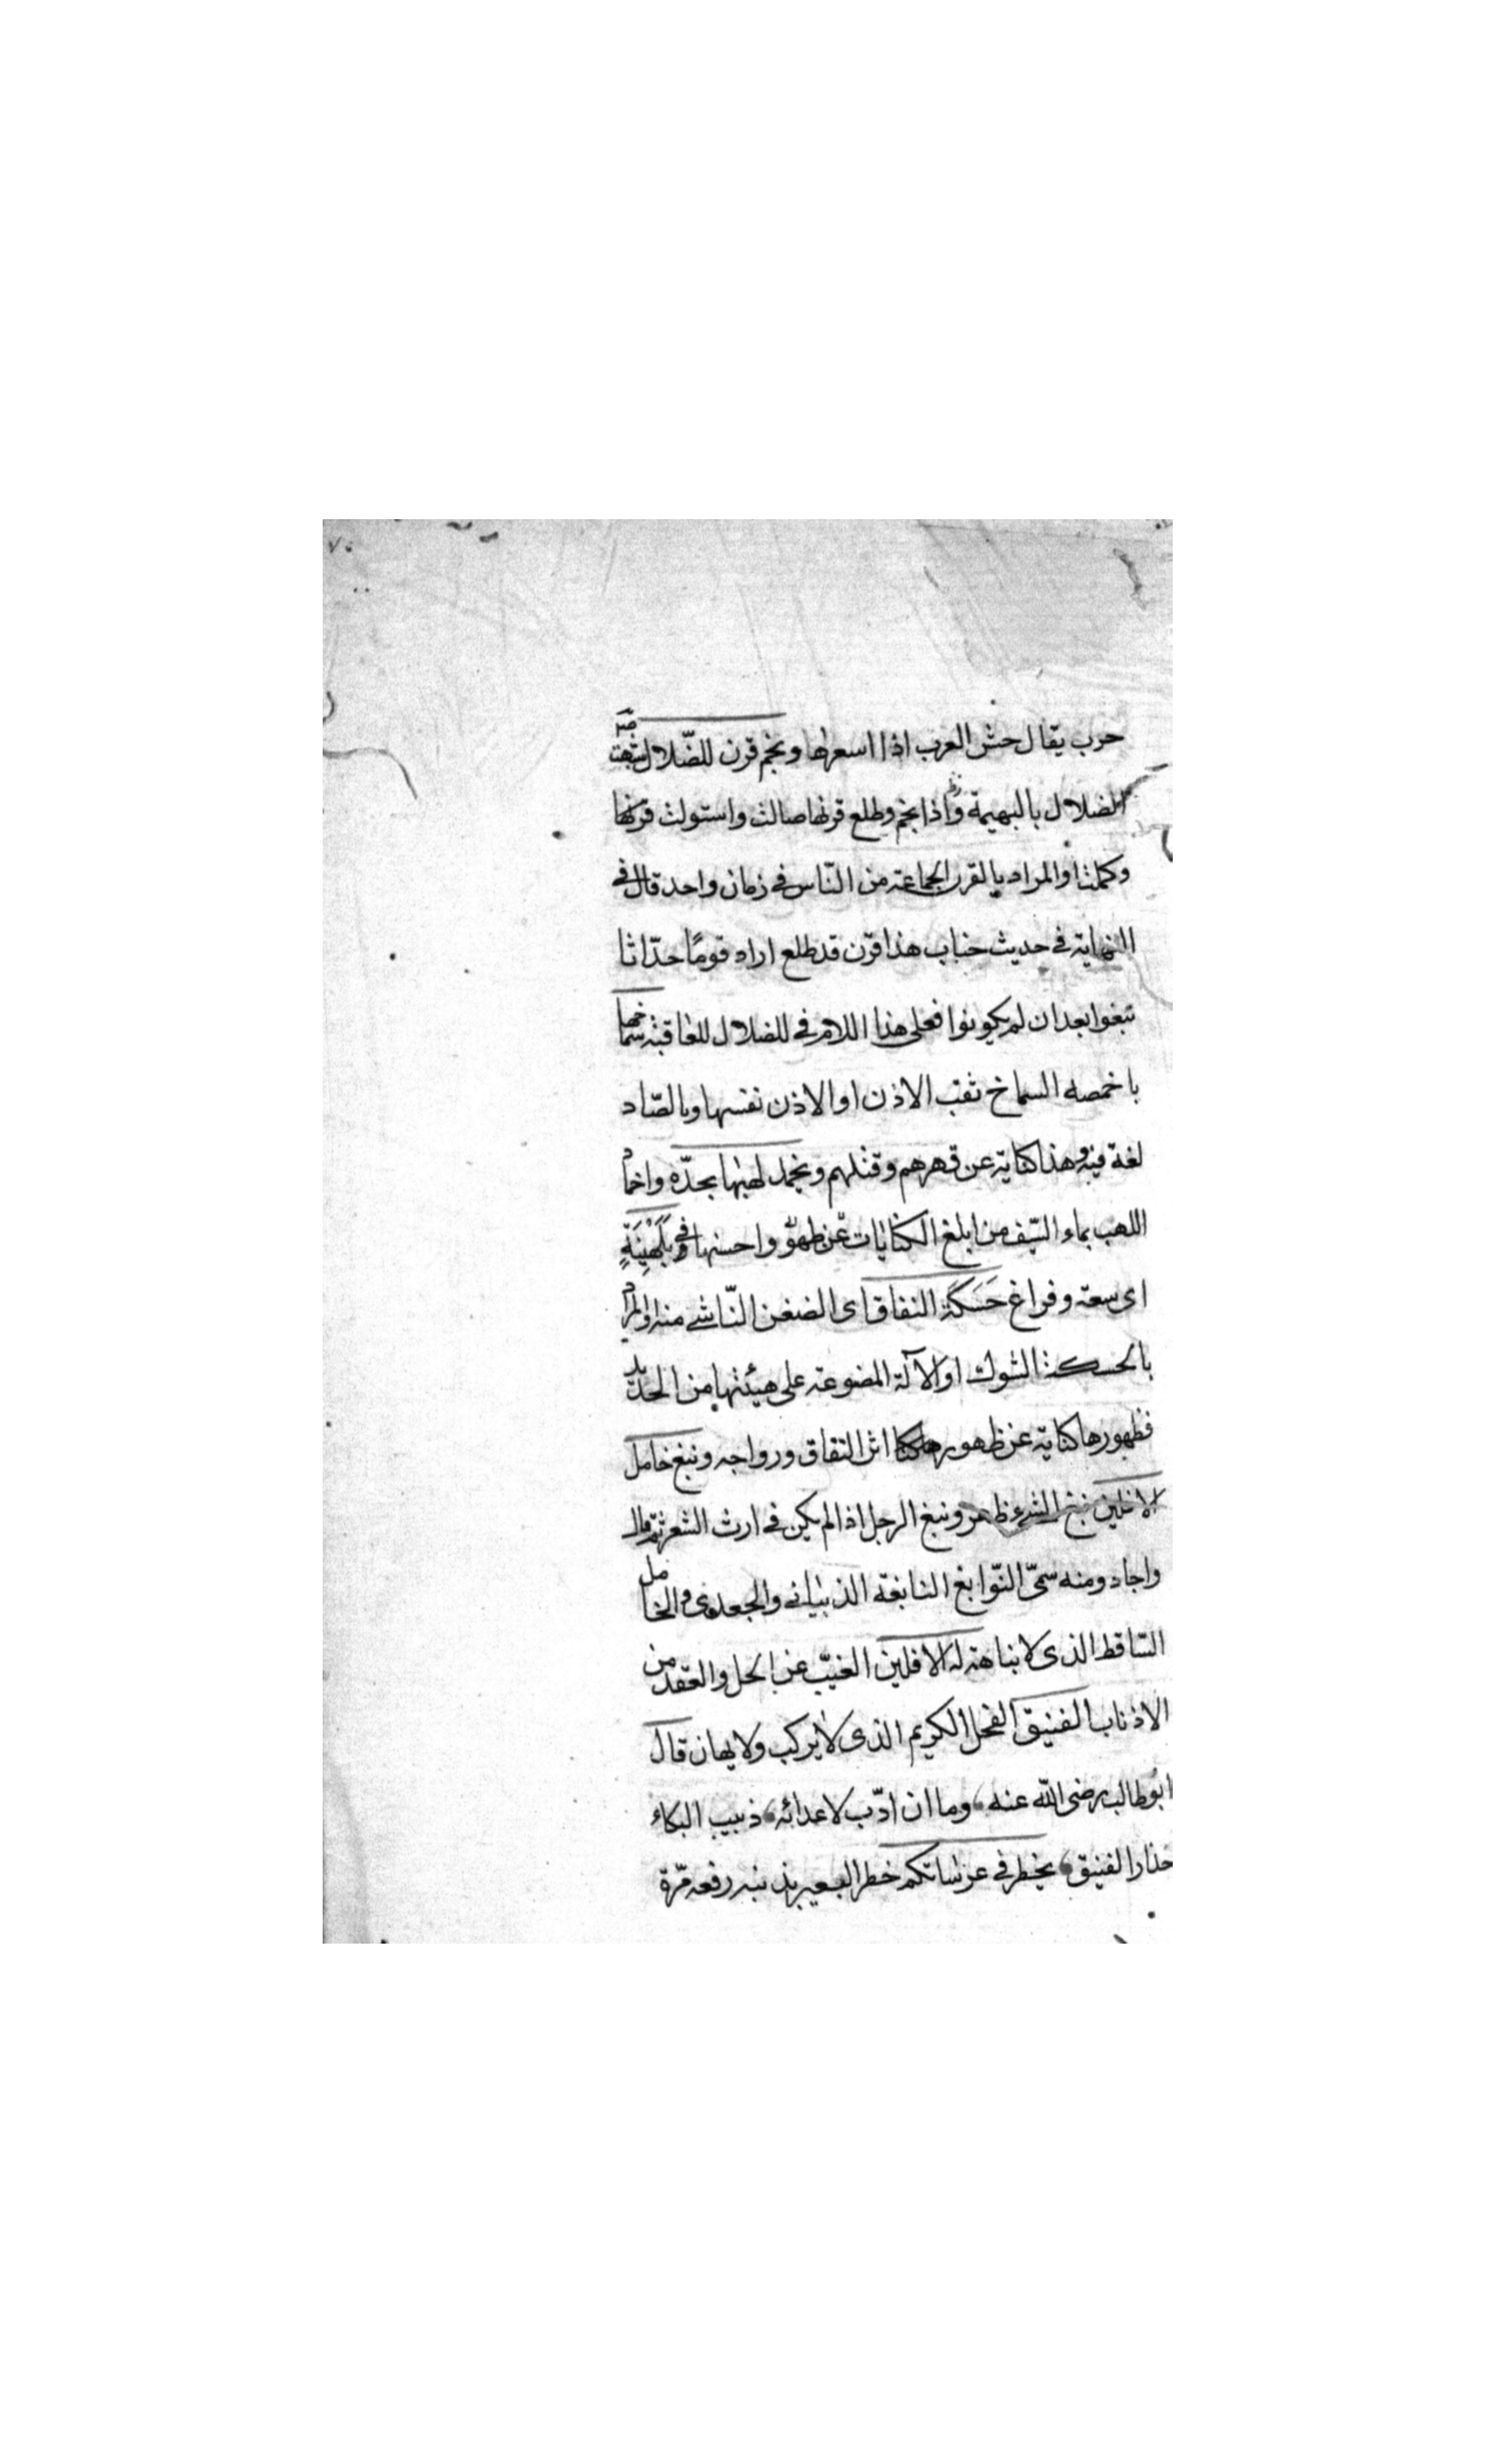 ٧٠
حرب يقال حش العرب اذا اسعرها ونجم قرن للضّلال شبهت
الضلال بالبهيمة واذا نجم وطلع قرنها صالت واستولت قرنها
وكملت او المراد بالقرن الجماعة من النّاس في زمان واحد قال في
النهاية في حديث خباب هذا قرن قد طلع اراد قومًا حدّاثا
نبغوا بعد ان لم يكونوا فعلى هذا اللام في للضلال للعاقبة سماخها
باخمصه السماخ ثقب الاذن او الاذن نفسها وبالصّاد
لغة فيه وهذا كناية عن قهرهم وقتلهم ويخمد لهبها بحدّه واخماد
اللهب بماء السّيف من ابلغ الكنايات واحسنها في بُلَهْنِيَةٍ
اى سعة وفراغ حَسَكَة النفاق اى الضغن النّاشي منه والمراد
بالحسكة الشوك او الآلة المصنوعة على هيئتها من الحديد
فظهورها كناية عن ظهور اثر النفاق ورواجه ونبغ خامل
الافلين نبغ الشيء ظهر ونبغ الرجل اذا لم يكن في ارث الشعر ثم قال
واجاد ومنه سمّى النّوابغ النابغة الذبياني والجعدى والخامل
السّاقط الذى لا نباهة له الافلين الغيّب عن الحل والعقد من
الاذناب الفنيق الفحل الكريم الذى لا يركب ولا يهان قال
ابو طالب رضى اللّه عنه وما ان ادّب لاعدائه ذبيب البكاء
حذار الفنيق يخطر في عرنساتكم خطر البعير بذنبه رفعه مرّة